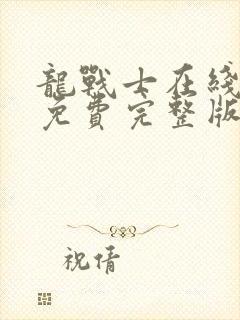 龍戰士在綫
免費完整版
祝倩